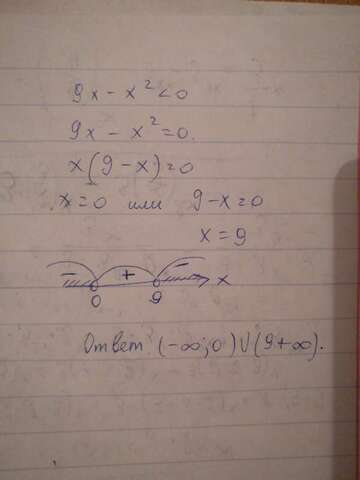 9x - x² < 0
9x - x² = 0.
x(9 - x) = 0
x = 0 или 9 - x = 0
x = 9
- + -
0 9 x
Ответ (-∞; 0) U (9 + ∞).